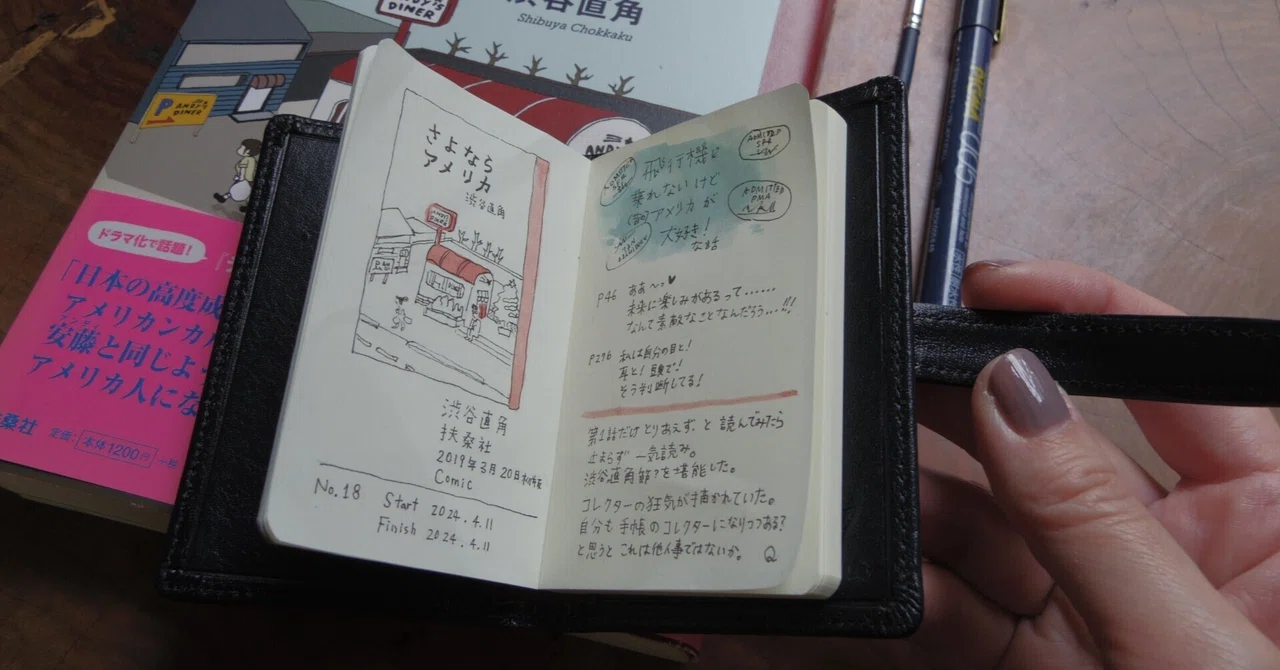 DINER
渋谷直角
Shibuya Chokkaku
P ANDY'S
DINER
ドラマ化で話題!
「日本の高度成
アメリカンカル
安藤と同じよ
アメリカ人にな
桑社 定価:本体1200円+税
さよなら
アメリカ
渋谷直角
渋谷直角
扶桑社
2019年3月20日初版
Comic
No.18
Start 2024.4.11
Finish 2024.4.11
飛行機に
乗れないけど
アメリカが
大好き!
な話
ADMITTED
ADMITTED
P46 ああ〜っ♥
未来に楽しみがあるって……
なんて素敵なことなんだろう…!!
P276 私は自分の目と!
耳と!頭で!
そう判断してる!
第1話だけとりあえず、と読んでみたら
止まらず一気読み。
渋谷直角節?を堪能した。
コレクターの狂気が描かれていた。
自分も手帳のコレクターになりつつある?
と思うとこれは他人事ではないか。